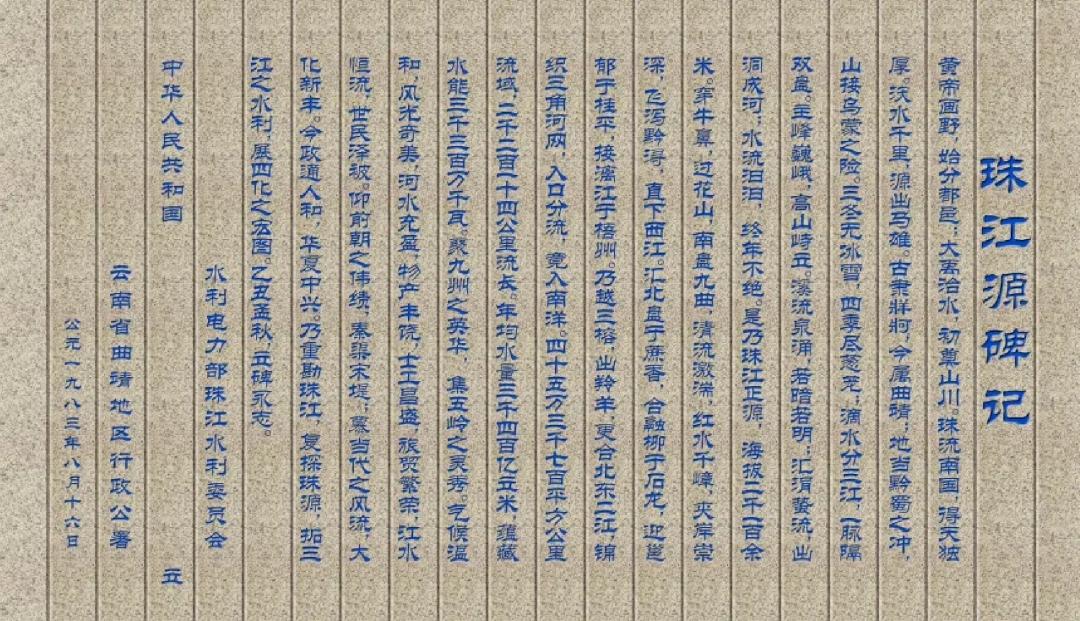 珠江源碑记
黄帝画野，始分都邑；大禹治水，初奠山川。珠流南国，得天独
厚。沃水千里，源出马雄。古隶牂牁，今属曲靖；地当黔蜀之冲，
山接乌蒙之险。三冬无冰雪，四季尽葱茏；滴水分三江，一脉隔
双盘。主峰巍峨，高山峙立。溪流泉涌，若暗若明；汇涓蛰流，出
洞成河；水流汩汩，终年不绝。是乃珠江正源，海拔二千一百余
米。穿牛鼻，过花山，南盘九曲，清流激湍，红水千嶂，夹岸崇
深，飞泻黔浔，直下西江。汇北盘于蔗香，合融柳于石龙，迎邕
郁于桂平，接漓江于梧州。乃越三榕，出羚羊，更合北东二江，锦
织三角河网，八口分流，竟入南洋。四十五万三千七百平方公里
流域，二千二百一十四公里流长。年均水量三千四百亿立米，蕴藏
水能三千三百万千瓦。聚九州之英华，集五岭之灵秀。气候温
和，风光奇美，河水充盈，物产丰饶，士工昌盛，旅贸繁荣，江水
恒流，世民泽被。仰前朝之伟绩，秦渠宋堤；慕当代之风流，大
化新丰。今政通人和，华夏中兴。乃重勘珠江，复探珠源，拓三
江之水利，展四化之宏图。乙丑孟秋，立碑永志。
水利电力部珠江水利委员会
中华人民共和国 立
云南省曲靖地区行政公署
公元一九八三年八月十六日